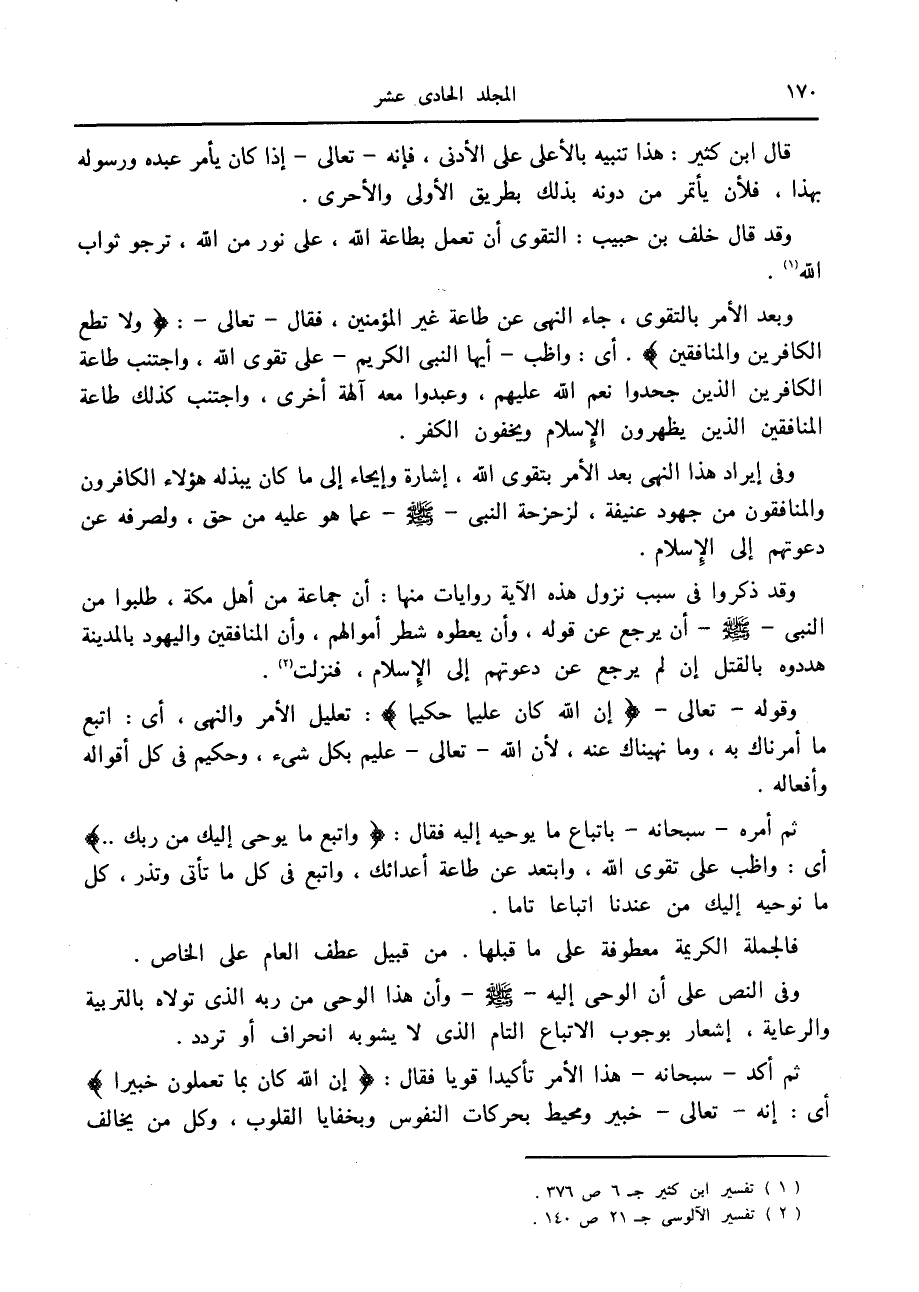 ١٧٠
المجلد الحادى عشر
قال ابن كثير : هذا تنبيه بالأعلى على الأدنى ، فإنه – تعالى – إذا كان يأمر عبده ورسوله
بهذا ، فلأن يأتمر من دونه بذلك بطريق الأولى والأحرى .
وقد قال خلف بن حبيب : التقوى أن تعمل بطاعة الله ، على نور من الله ، ترجو ثواب
الله(١) .
وبعد الأمر بالتقوى ، جاء النهى عن طاعة غير المؤمنين ، فقال – تعالى – : ﴿ ولا تطع
الكافرين والمنافقين ﴾ . أى : واظب – أيها النبى الكريم – على تقوى الله ، واجتنب طاعة
الكافرين الذين جحدوا نعم الله عليهم ، وعبدوا معه آلهة أخرى ، واجتنب كذلك طاعة
المنافقين الذين يظهرون الإسلام ويخفون الكفر .
وفى إيراد هذا النهى بعد الأمر بتقوى الله ، إشارة وإيحاء إلى ما كان يبذله هؤلاء الكافرون
والمنافقون من جهود عنيفة ، لزحزحة النبى – ﷺ – عما هو عليه من حق ، ولصرفه عن
دعوتهم إلى الإسلام .
وقد ذكروا فى سبب نزول هذه الآية روايات منها : أن جماعة من أهل مكة ، طلبوا من
النبى – ﷺ – أن يرجع عن قوله ، وأن يعطوه شطر أموالهم ، وأن المنافقين واليهود بالمدينة
هددوه بالقتل إن لم يرجع عن دعوتهم إلى الإسلام ، فنزلت(٢) .
وقوله – تعالى – ﴿ إن الله كان عليما حكيما ﴾ : تعليل الأمر والنهى ، أى : اتبع
ما أمرناك به ، وما نهيناك عنه ، لأن الله – تعالى – عليم بكل شىء ، وحكيم فى كل أقواله
وأفعاله .
ثم أمره – سبحانه – باتباع ما يوحيه إليه فقال : ﴿ واتبع ما يوحى إليك من ربك ..﴾
أى : واظب على تقوى الله ، وابتعد عن طاعة أعدائك ، واتبع فى كل ما تأتى وتذر ، كل
ما نوحيه إليك من عندنا اتباعا تاما .
فالجملة الكريمة معطوفة على ما قبلها . من قبيل عطف العام على الخاص .
وفى النص على أن الوحى إليه – ﷺ – وأن هذا الوحى من ربه الذى تولاه بالتربية
والرعاية ، إشعار بوجوب الاتباع التام الذى لا يشوبه انحراف أو تردد .
ثم أكد – سبحانه – هذا الأمر تأكيدا قويا فقال : ﴿ إن الله كان بما تعملون خبيرا ﴾
أى : إنه – تعالى – خبير ومحيط بحركات النفوس وبخفايا القلوب ، وكل من يخالف
( ١ ) تفسير ابن كثير جـ ٦ ص ٣٧٦ .
( ٢ ) تفسير الآلوسى جـ ٢١ ص ١٤٠ .